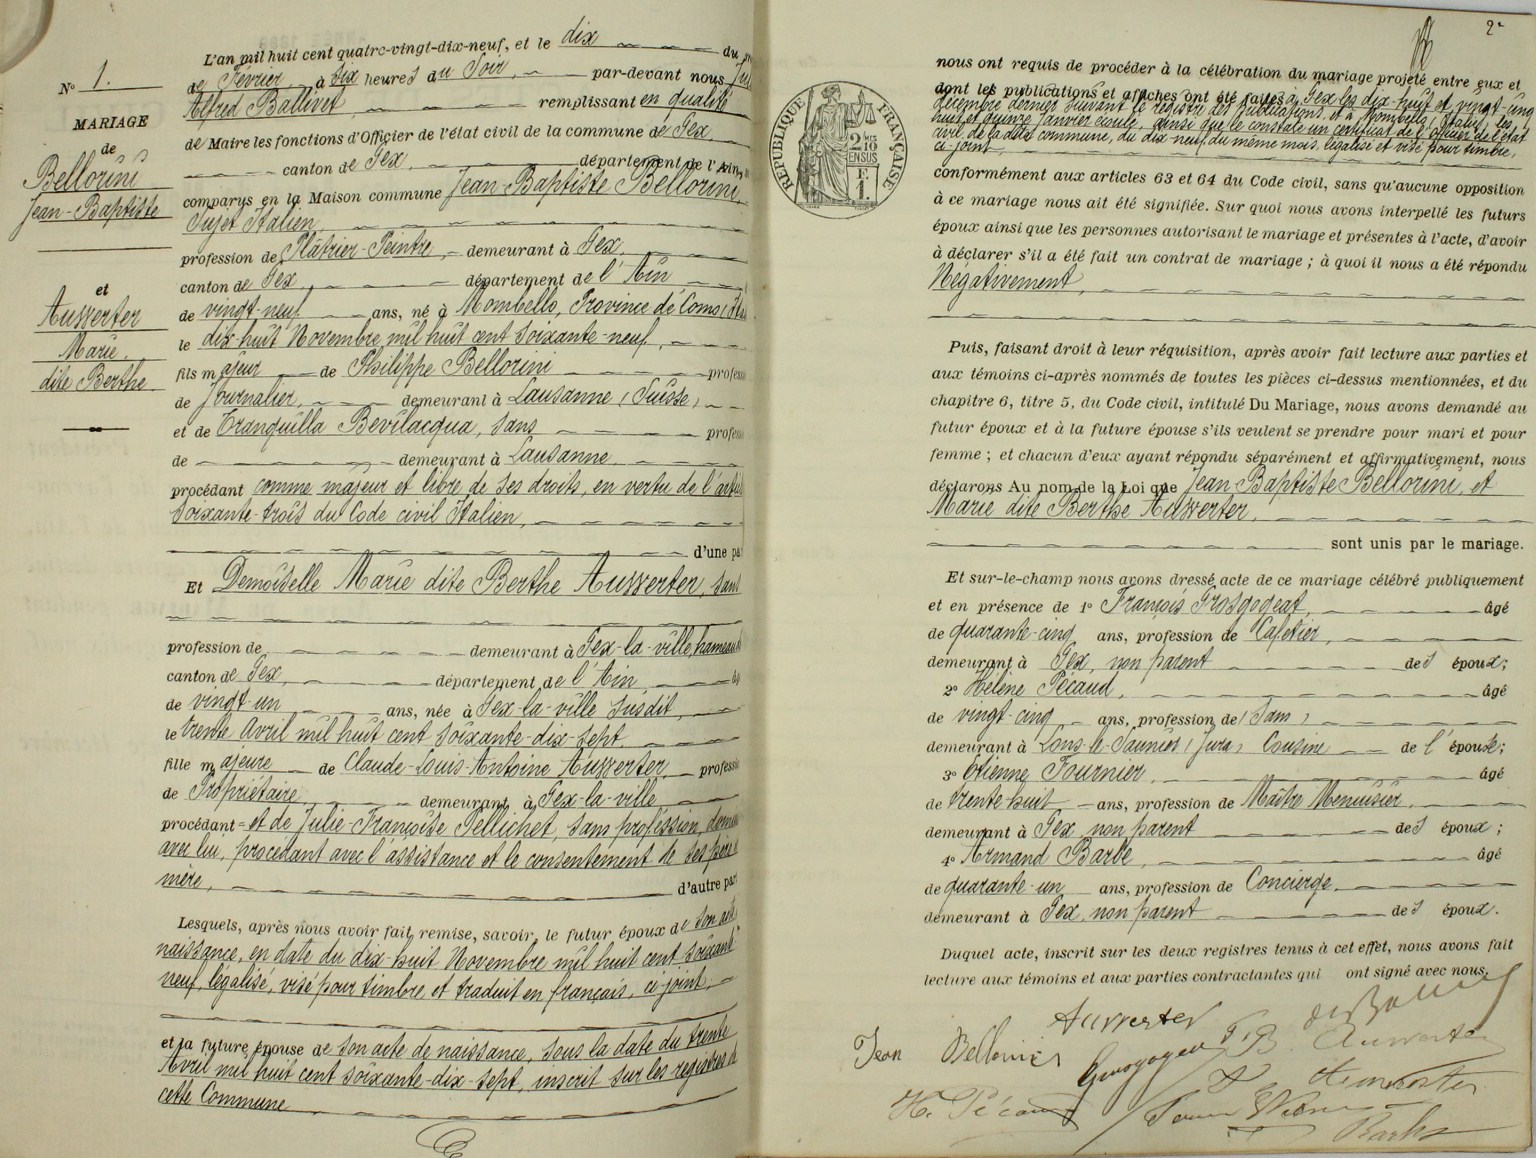 N° 1.
MARIAGE
de
Bellorini
Jean-Baptiste
et
Auwerter
Marie
dite Berthe
L'an mil huit cent quatre-vingt-dix-neuf, et le dix du
de Février, à six heures du Soir, par-devant nous
Alfred Ballivet remplissant en qualité
de Maire les fonctions d'Officier de l'état civil de la commune de Gex,
canton de Gex, département de l'Ain,
comparus en la Maison commune Jean-Baptiste Bellorini,
Sujet Italien,
profession de Plâtrier-Peintre, demeurant à Gex,
canton de Gex, département de l'Ain
de vingt-neuf ans, né à Mombello, Province de Como
le dix-huit Novembre mil huit cent soixante-neuf,
fils majeur de Philippe Bellorini
de Journalier, demeurant à Lausanne (Suisse),
et de Tranquilla Bevilacqua, sans
de demeurant à Lausanne
procédant comme majeur et libre de ses droits, en vertu de l'
soixante-trois du Code civil Italien,
d'une
Et Demoiselle Marie dite Berthe Auwerter, sans
profession de demeurant à Gex-la-ville, hameau
canton de Gex, département de l'Ain,
de vingt-un ans, née à Gex-la-ville susdit,
le trente Avril mil huit cent soixante-dix-sept,
fille majeure de Claude-Louis-Antoine Auwerter,
de Propriétaire, demeurant à Gex-la-ville
procédant = et de Julie-Françoise Pellichet, sans profession,
avec lui, procédant avec l'assistance et le consentement de ses père
mère, d'autre
Lesquels, après nous avoir fait remise, savoir, le futur époux de son
naissance, en date du dix-huit Novembre mil huit cent soixante
neuf, légalisé, visé pour timbre et traduit en français, ci-joint,
et la future épouse de son acte de naissance, sous la date du trente
Avril mil huit cent soixante-dix-sept, inscrit sur les registres de
cette Commune
2e
RÉPUBLIQUE FRANÇAISE
nous ont requis de procéder à la célébration du mariage projeté entre eux et
dont les publications et affiches ont été faites à Gex les dix-huit et vingt-cinq
décembre dernier suivant le registre des publications, et à Mombello (Italie), les
huit et quinze Janvier écoulé, ainsi que le constate un certificat de l'officier de l'état
civil de la dite commune, du dix-neuf du même mois, légalisé et visé pour timbre,
ci-joint,
conformément aux articles 63 et 64 du Code civil, sans qu'aucune opposition
à ce mariage nous ait été signifiée. Sur quoi nous avons interpellé les futurs
époux ainsi que les personnes autorisant le mariage et présentes à l'acte, d'avoir
à déclarer s'il a été fait un contrat de mariage ; à quoi il nous a été répondu
Négativement,
Puis, faisant droit à leur réquisition, après avoir fait lecture aux parties et
aux témoins ci-après nommés de toutes les pièces ci-dessus mentionnées, et du
chapitre 6, titre 5, du Code civil, intitulé Du Mariage, nous avons demandé au
futur époux et à la future épouse s'ils veulent se prendre pour mari et pour
femme ; et chacun d'eux ayant répondu séparément et affirmativement, nous
déclarons Au nom de la Loi que Jean-Baptiste Bellorini, et
Marie dite Berthe Auwerter,
sont unis par le mariage.
Et sur-le-champ nous avons dressé acte de ce mariage célébré publiquement
et en présence de 1° François Grosgogeat, âgé
de quarante-cinq ans, profession de Cafetier,
demeurant à Gex, non parent des époux;
2° Hélène Pécaud, âgé
de vingt-cinq ans, profession de (Sans)
demeurant à Lons-le-Saunier (Jura) Cousine de l'épouse;
3° Etienne Fournier, âgé
de trente-huit ans, profession de Maître Menuisier,
demeurant à Gex, non parent des époux ;
4° Armand Barbe, âgé
de quarante-un ans, profession de Concierge,
demeurant à Gex, non parent des époux.
Duquel acte, inscrit sur les deux registres tenus à cet effet, nous avons fait
lecture aux témoins et aux parties contractantes qui ont signé avec nous.
Auwerter
Jean Bellorini
B. Auwerter
H. Pécaud
Barbe